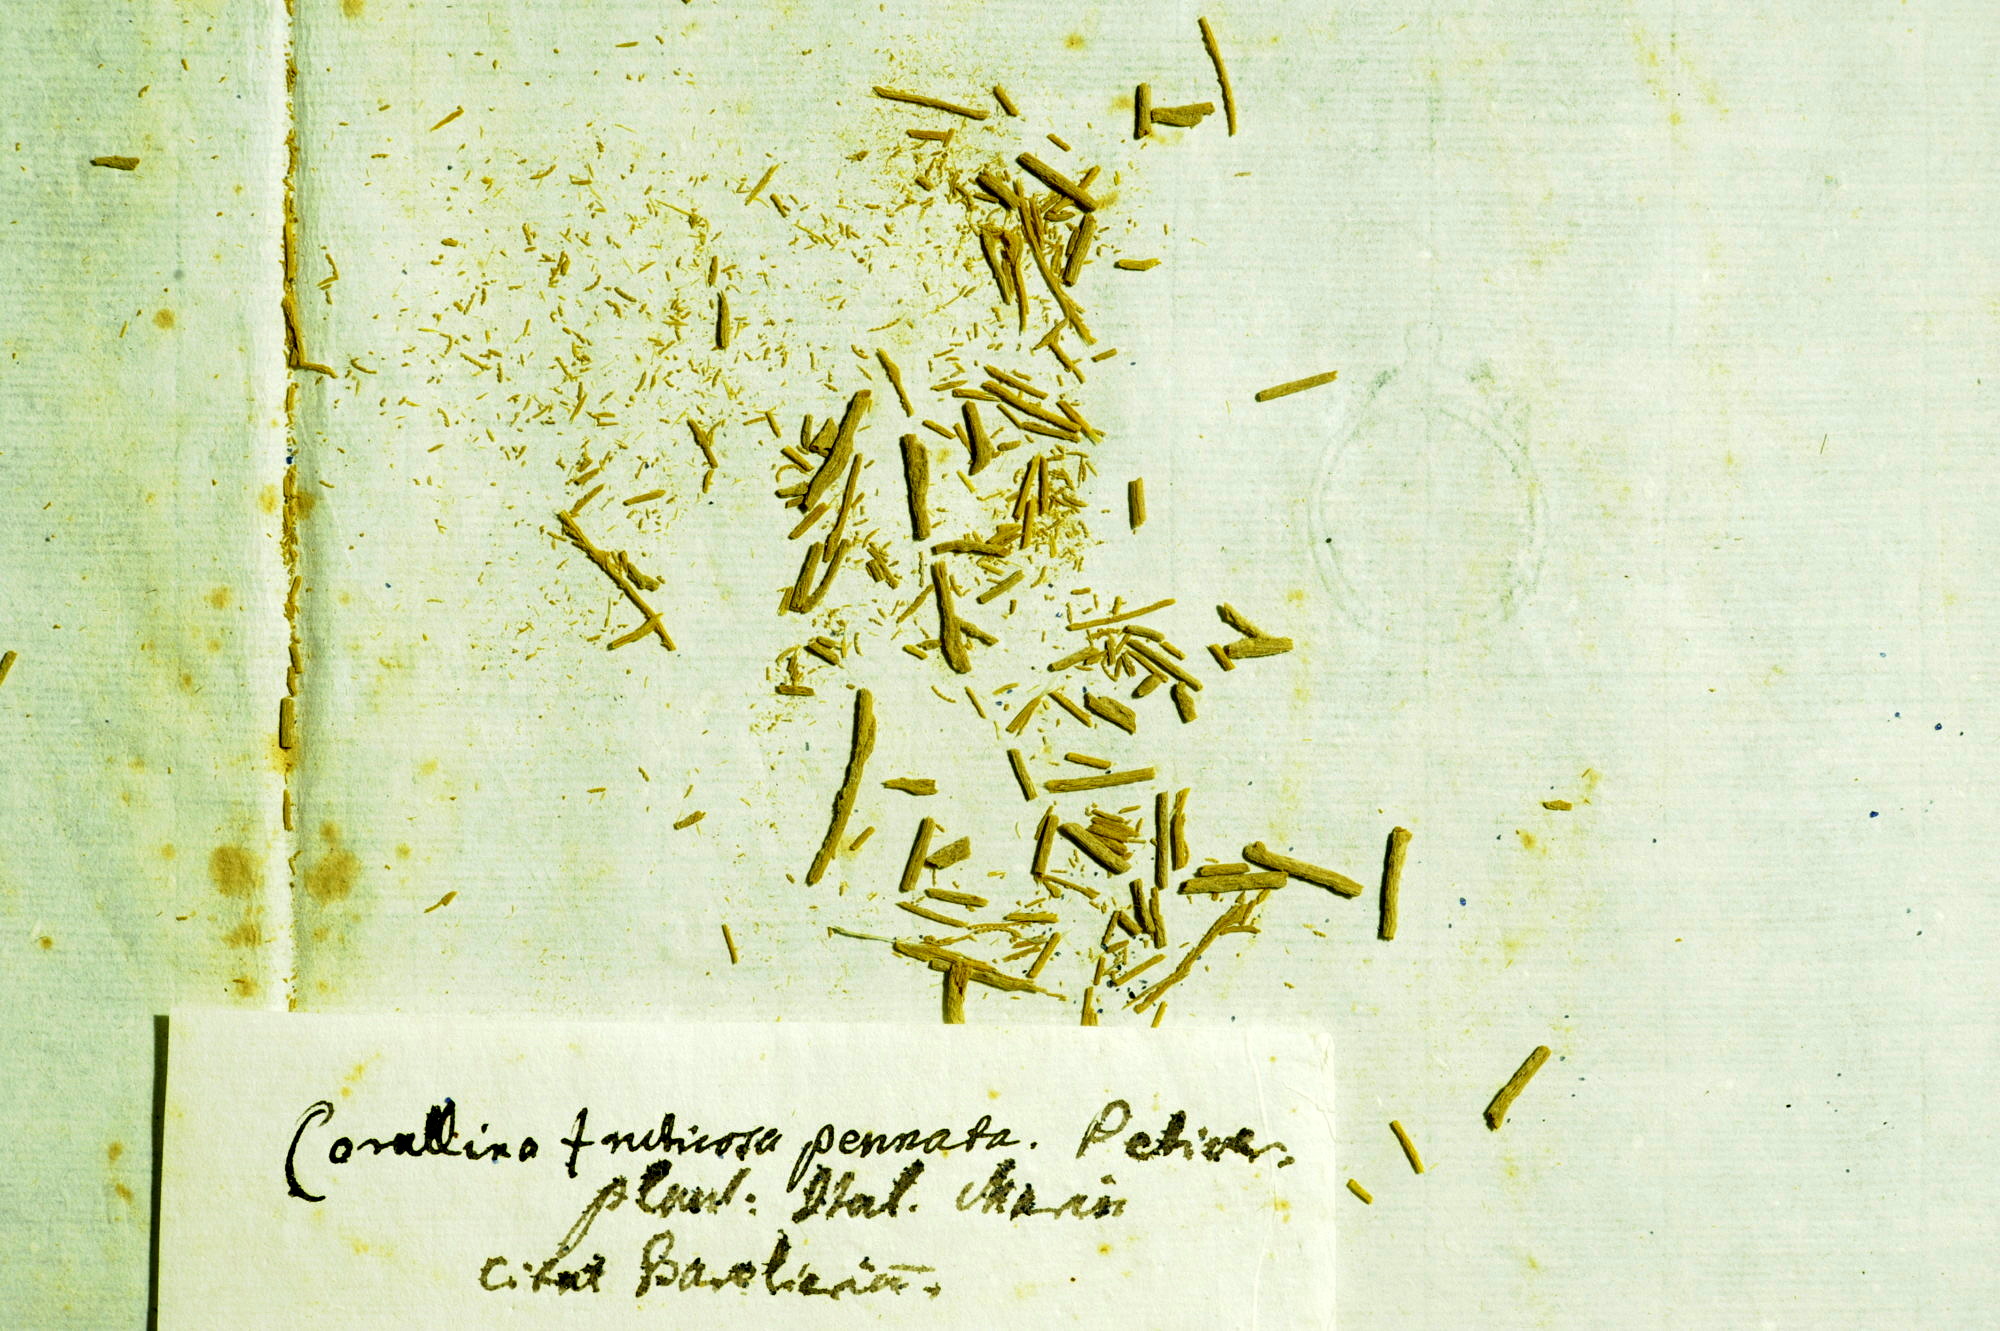 Corallina fruticosa pennata. Petiver.
plant: Ital. Marin
citat Barelierū.